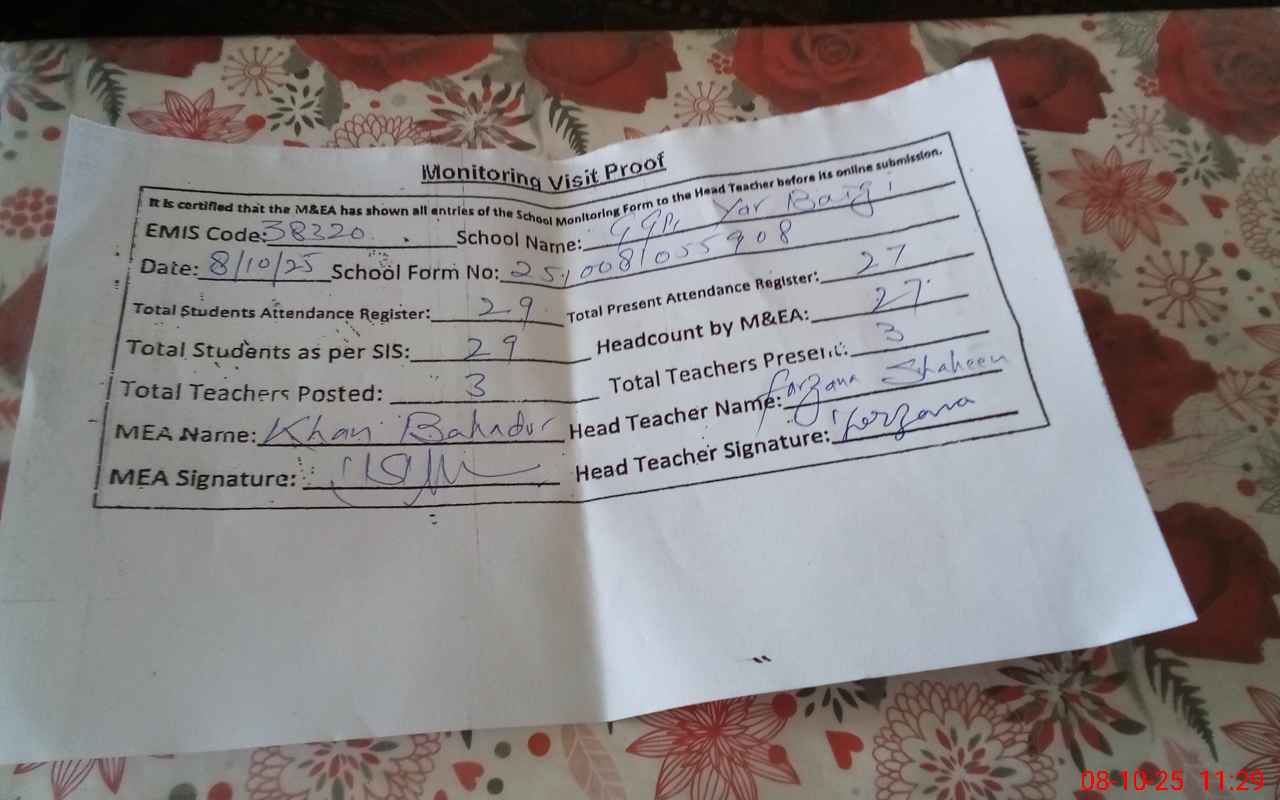 Monitoring Visit Proof
It is certified that the M&EA has shown all entries of the School Monitoring Form to the Head Teacher before its online submission.
EMIS Code: 38320 School Name: GGPS Yar Baig
Date: 8/10/25 School Form No: 2510081055908
Total Students Attendance Register: 29 Total Present Attendance Register: 27
Total Students as per SIS: 29 Headcount by M&EA: 27
Total Teachers Posted: 3 Total Teachers Present: 3
MEA Name: Khan Bahadur Head Teacher Name: Farzana Shaheen
MEA Signature: Head Teacher Signature: Farzana
08-10-25 11:29